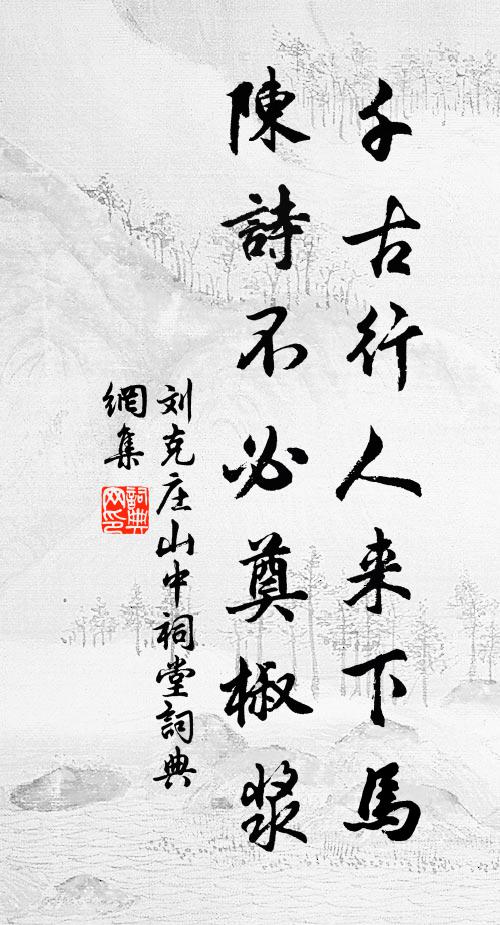 千古行人来下馬
陳詩不必奠椒漿
刘克庄山中祠堂詞典
網集
詞典網印